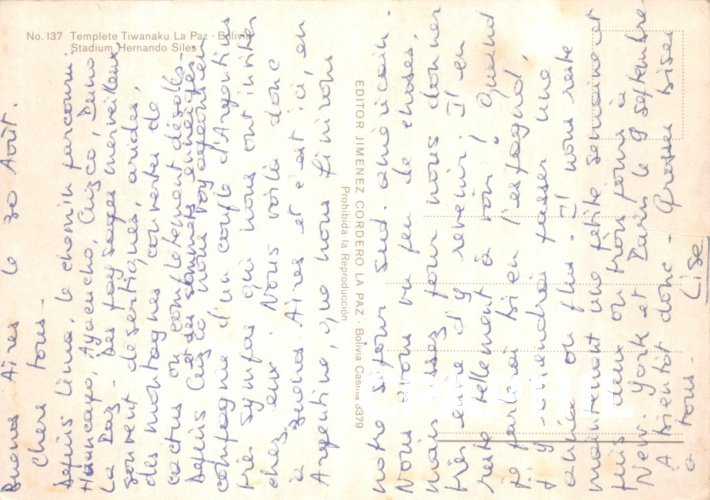 No. 137 Templete Tiwanaku La Paz - Bolivia
Stadium Hernando Siles
EDITOR JIMENEZ CORDERO LA PAZ - Bolivia Casilla 3379
Prohibida la Reproducción
Buenos Aires le 30 Août.
Chers tous -
Depuis Lima, le chemin parcouru.
Huancayo, Ayacucho, Cuzco, Puno
La Paz - Des paysages merveilleux
souvent désertiques, arides,
des montagnes couvertes de
cactus ou complètement désolés
et des sommets enneigés
Depuis Cuzco nous voyageons en
compagnie d'un couple d'Argentins
très sympas que nous ont invités
chez eux. Nous voilà donc
à Buenos Aires et c'est ici, en
Argentine, que nous finirons
notre séjour sud-américain.
Nous avons vu peu de choses,
mais assez pour nous donner
très envie d'y revenir. Il en
reste tellement à voir! Quand
je parlerai bien l'espagnol,
j'y reviendrai passer une
année ou plus. Il nous reste
maintenant une petite semaine et
puis nous on
New York et Paris le 9 septembre
A Bientôt donc - Grosses Bises
à tous -
Lise